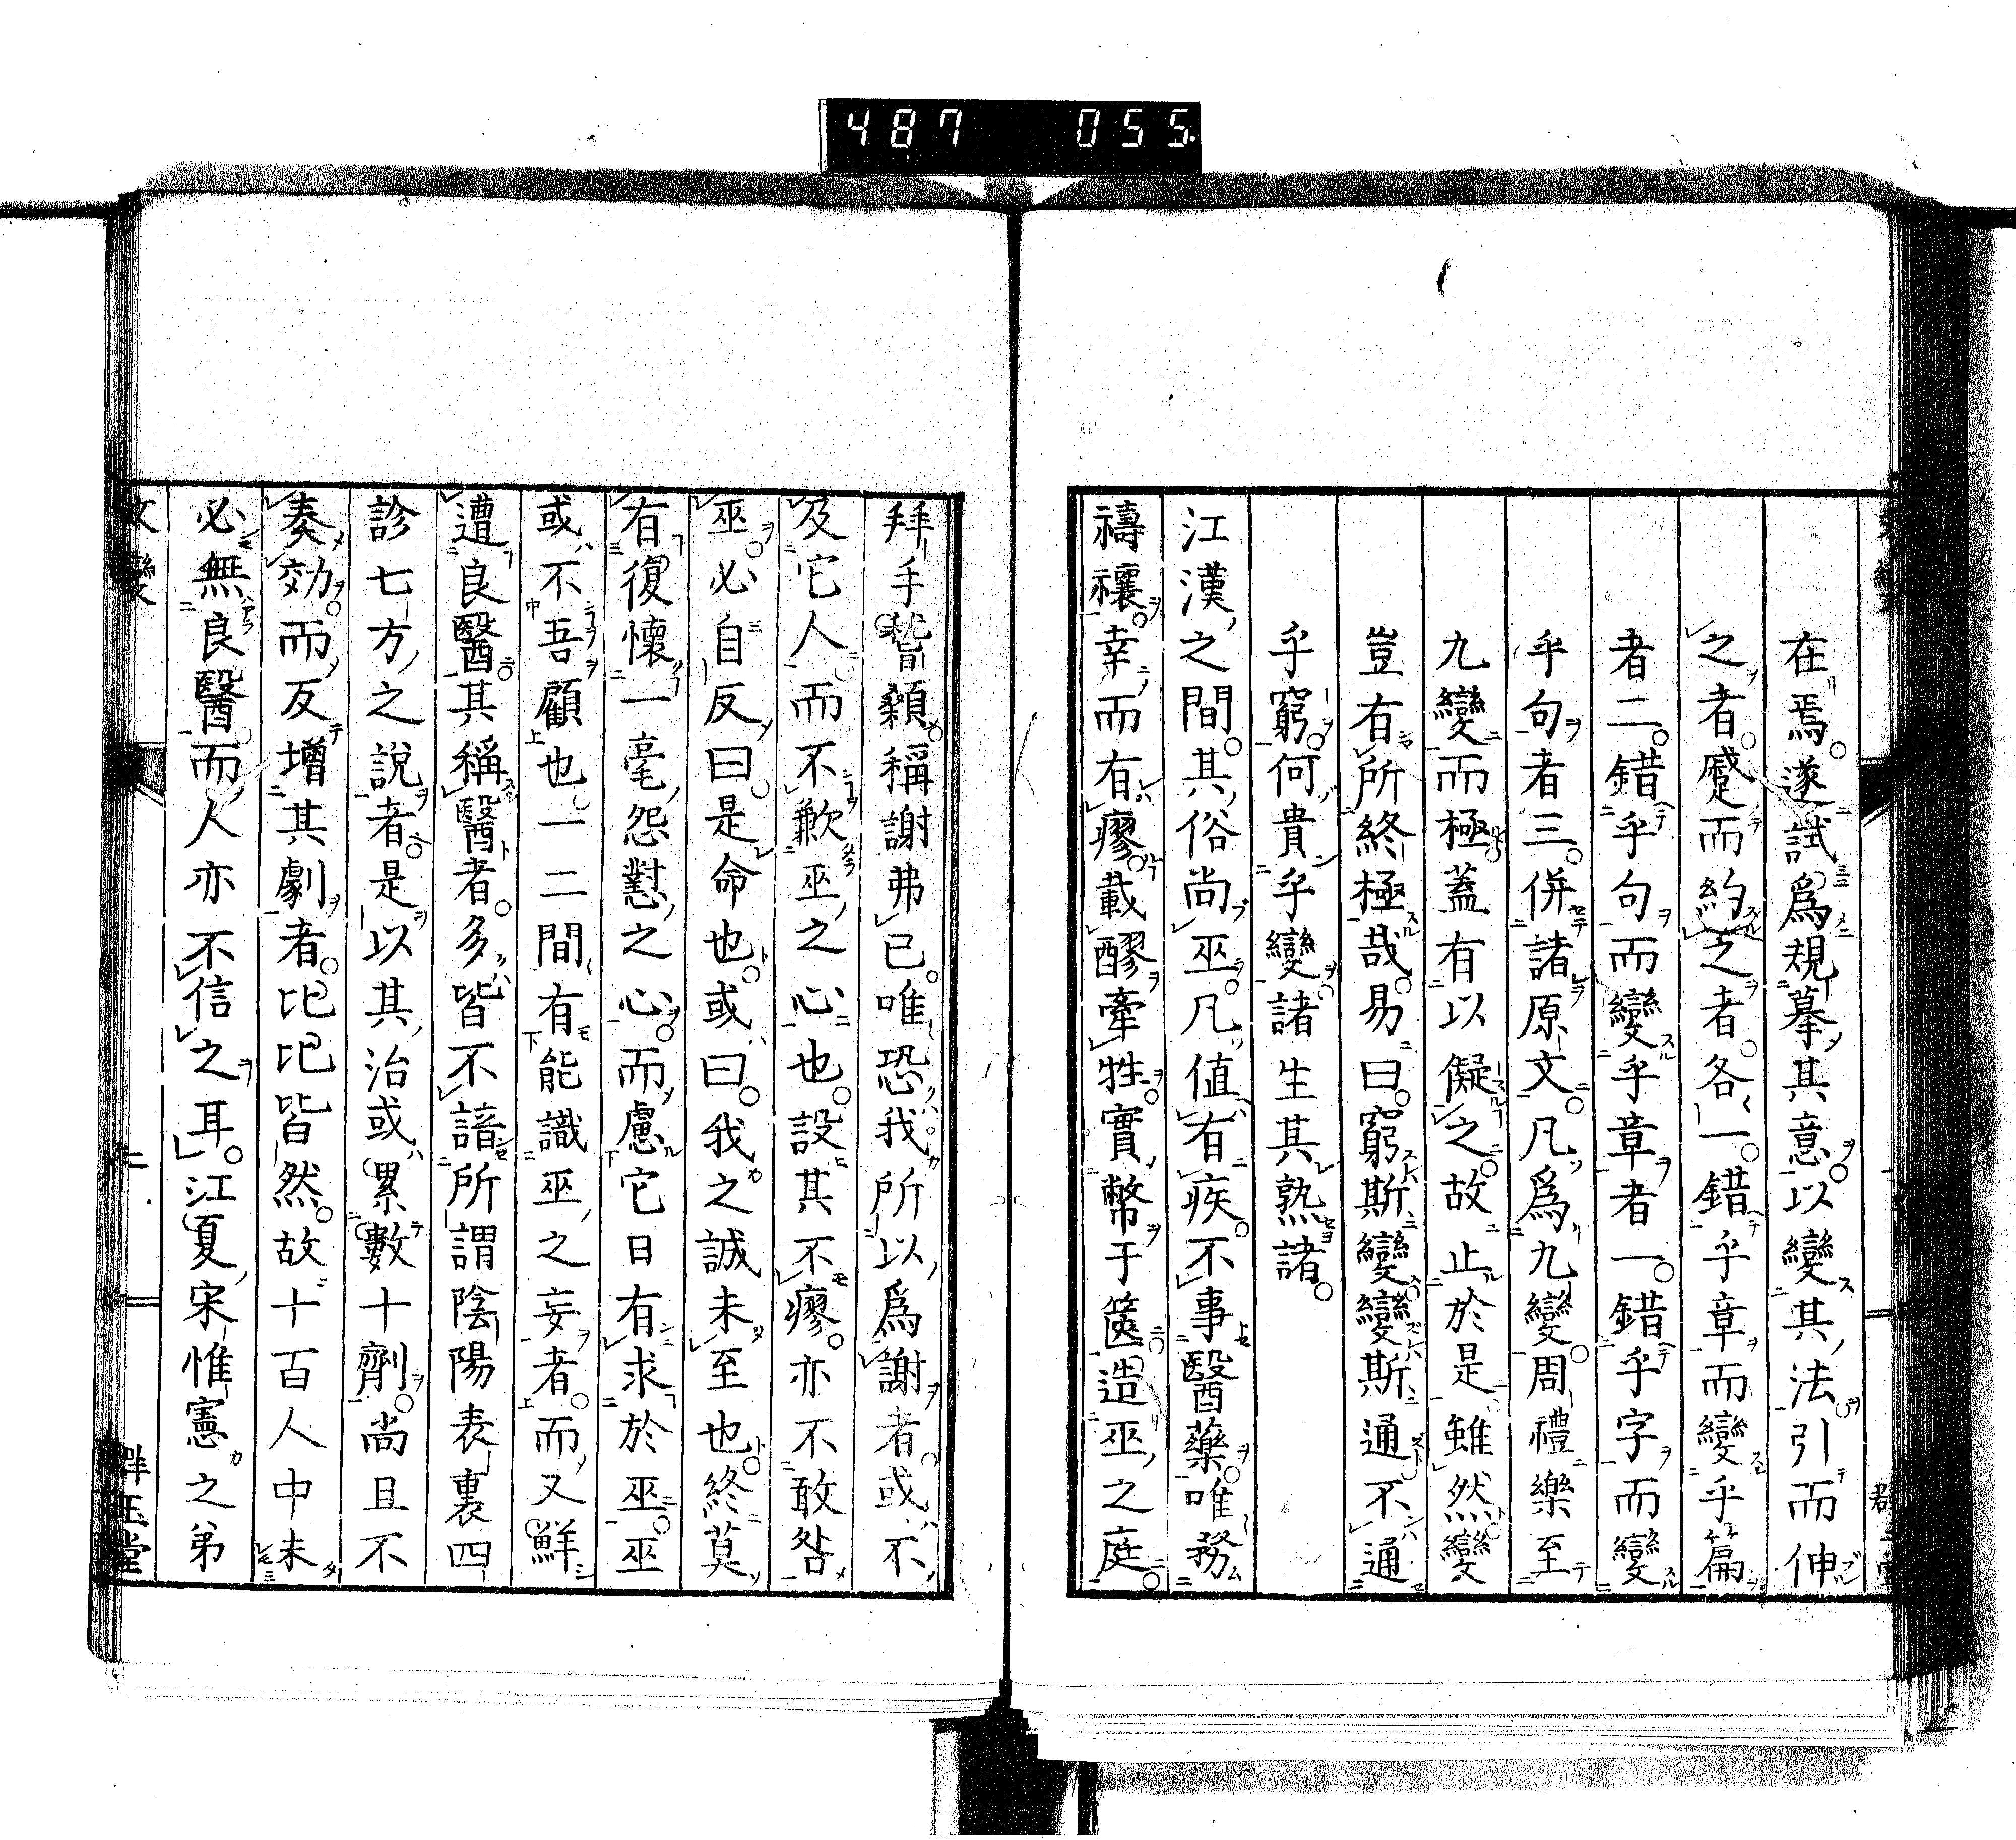 487 055
在焉遂試爲規摹其意以變其法引而伸
之者蹙而約之者各一錯乎章而變乎篇
者二錯乎句而變乎章者一錯乎字而變
乎句者三併諸原文凡爲九變周禮樂至
九變而極蓋有以儗之故止於是雖然變
豈有所終極哉易曰窮斯變變斯通不通
乎窮何貴乎變諸生其熟諸
江漢之間其俗尚巫凡値有疾不事醫藥唯務
禱禳幸而有瘳載醪牽牲實幣于篋造巫之庭
拜手稽顙稱謝弗已唯恐我所以爲謝者或不
及它人而不歉巫之心也設其不瘳亦不敢咎
巫必自反曰是命也或曰我之誠未至也終莫
有復懷一毫怨懟之心而慮它日有求於巫巫
或不吾顧也一二間有能識巫之妄者而又鮮
遭良醫其稱醫者多皆不諳所謂陰陽表裏四
診七方之說者是以其治或累數十劑尚且不
奏効而反增其劇者比比皆然故十百人中未
必無良醫而人亦不信之耳江夏宋惟憲之弟
文變
二
群玉堂